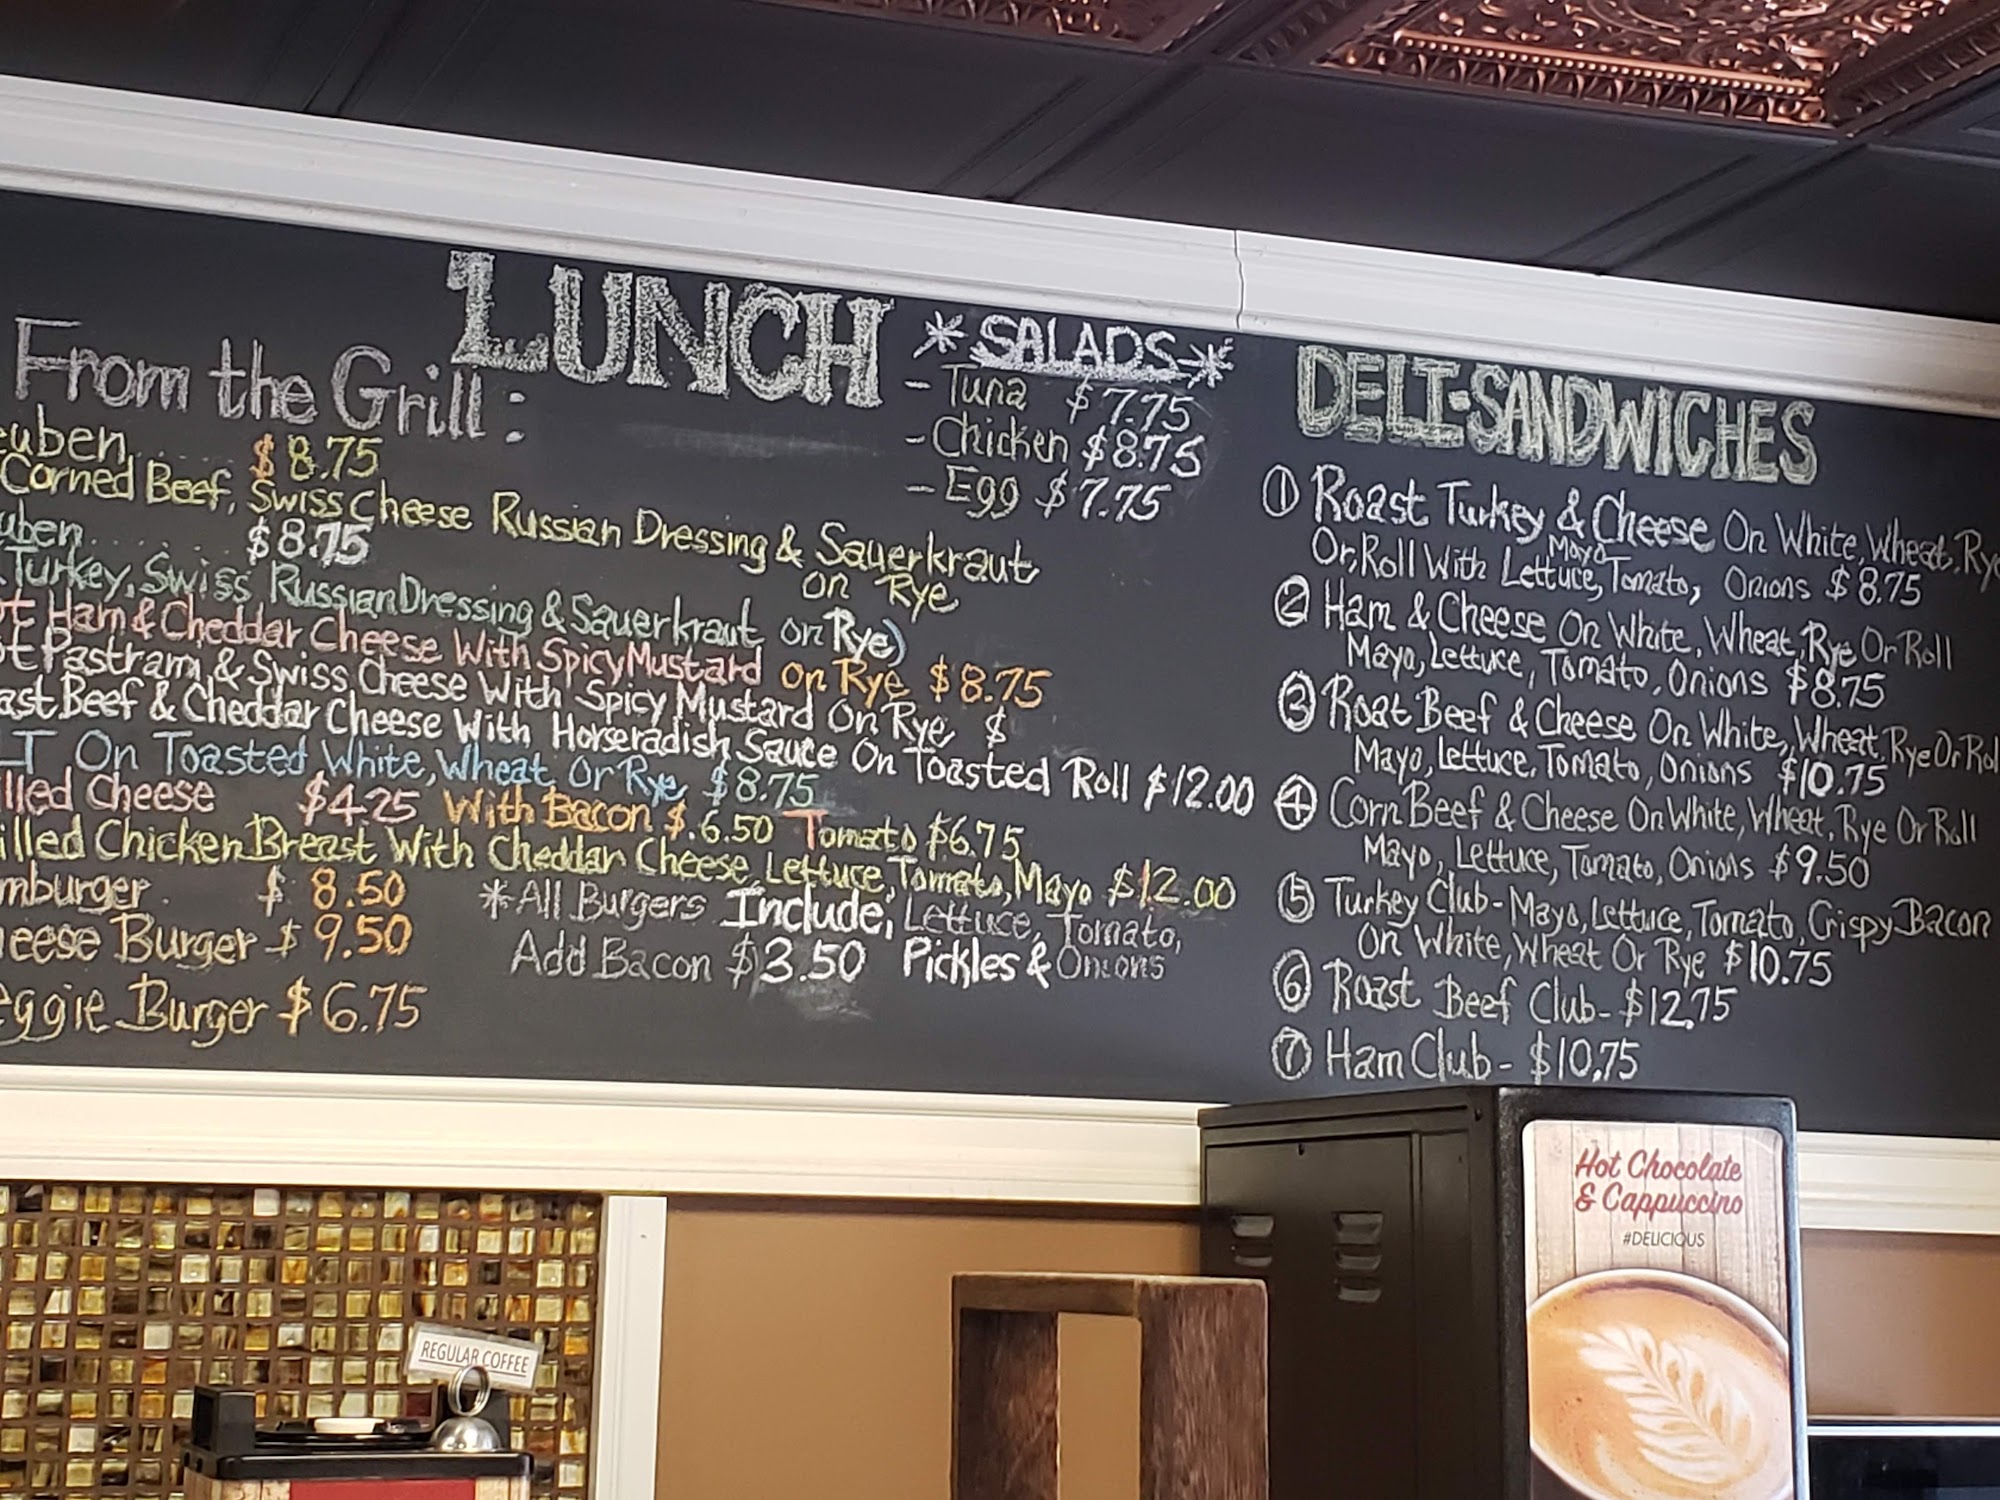 LUNCH
From the Grill:
euben...... $8.75
Corned Beef, Swiss Cheese Russian Dressing & Sauerkraut
on Rye
uben...... $8.75
Turkey, Swiss Russian Dressing & Sauerkraut on Rye)
ot Ham & Cheddar Cheese With Spicy Mustard on Rye $8.75
ot Pastrami & Swiss Cheese With Spicy Mustard On Rye $
ast Beef & Cheddar Cheese With Horseradish Sauce On Toasted Roll $12.00
LT On Toasted White, Wheat Or Rye $8.75
illed Cheese $4.25 With Bacon $.6.50 Tomato $6.75
illed Chicken Breast With Cheddar Cheese, Lettuce, Tomato, Mayo $12.00
mburger. $8.50
eese Burger $9.50
eggie Burger $6.75
*All Burgers Include, Lettuce, Tomato,
Add Bacon $3.50 Pickles & Onions
*SALADS*
- Tuna $7.75
- Chicken $8.75
- Egg $7.75
DELI-SANDWICHES
① Roast Turkey & Cheese On White, Wheat, Rye
Or, Roll With Lettuce, Mayo Tomato, Onions $8.75
② Ham & Cheese On White, Wheat, Rye Or Roll
Mayo, Lettuce, Tomato, Onions $8.75
③ Roat Beef & Cheese On White, Wheat, Rye Or Rol
Mayo, Lettuce, Tomato, Onions $10.75
④ Corn Beef & Cheese On White, Wheat, Rye Or Roll
Mayo, Lettuce, Tomato, Onions $9.50
⑤ Turkey Club - Mayo, Lettuce, Tomato, Crispy Bacon
On White, Wheat Or Rye $10.75
⑥ Roast Beef Club - $12.75
⑦ Ham Club - $10.75
Hot Chocolate
& Cappuccino
#DELICIOUS
REGULAR COFFEE